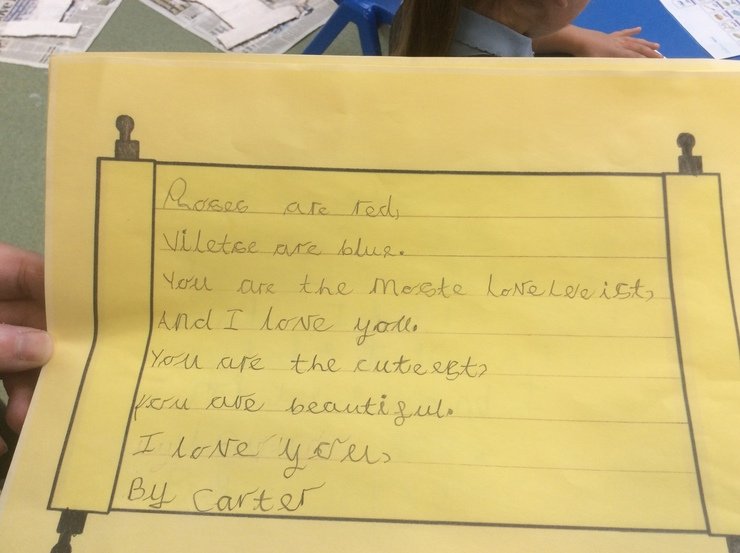 Roses are red,
Viletse are blue.
You are the moste loveleeist,
And I love you.
You are the cuteest,
you are beautiful.
I love you,
By Carter